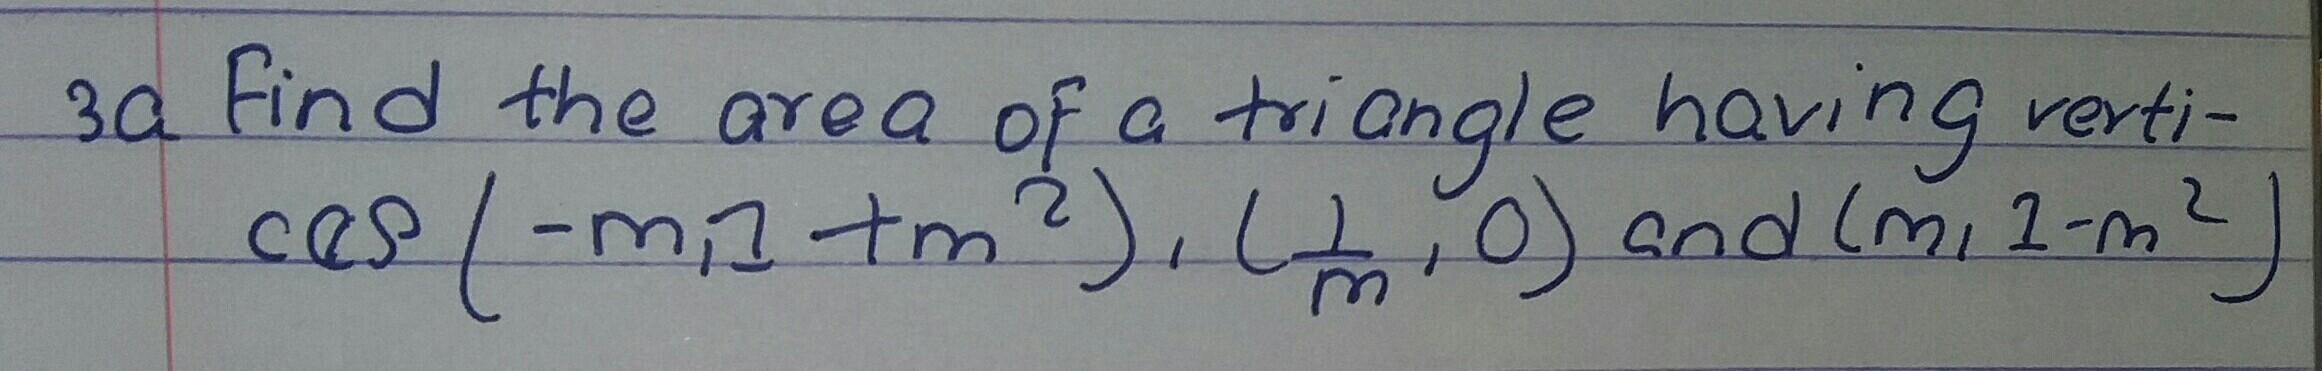 3a Find the area of a triangle having verti-
ces (-m, 1 + m²), (1/m, 0) and (m, 1-m²)